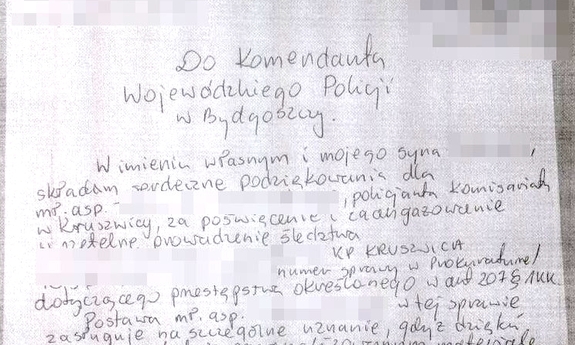 Do Komendanta
Wojewódzkiego Policji
w Bydgoszczy.
W imieniu własnym i mojego syna ,
składam serdeczne podziękowania dla
mł. asp. , policjanta Komisariatu
w Kruszwicy, za poświęcenie i zaangażowanie
i rzetelne prowadzenie śledztwa
KP KRUSZWICA
numer sprawy w Prokuraturze/
dotyczącego przestępstwa określonego w art 207 § 1 KK
w tej sprawie
Postawa mł. asp.
zasługuje na szczególne uznanie, gdyż dzięki